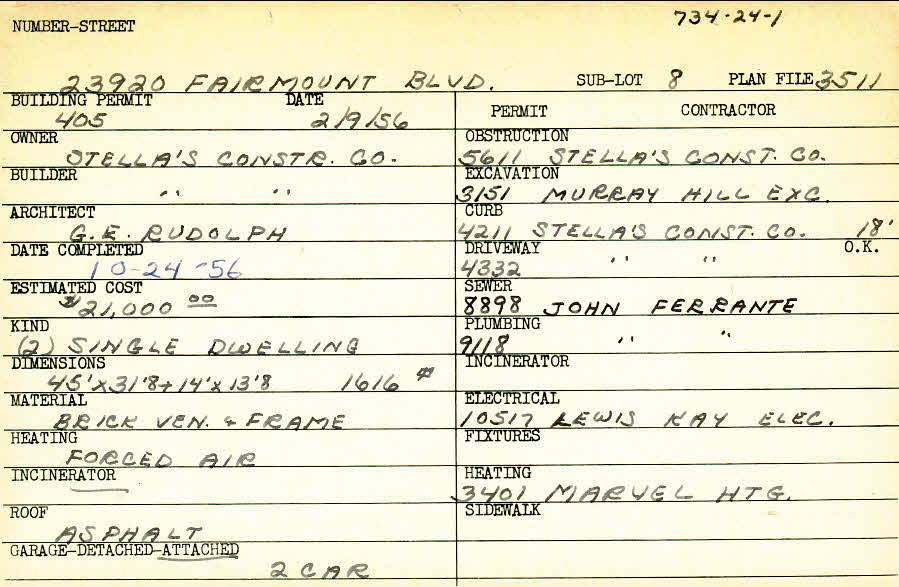 734-24-1
NUMBER-STREET
23920 FAIRMOUNT BLVD. SUB-LOT 8 PLAN FILE 3511
BUILDING PERMIT DATE
405 2/9/56
OWNER
STELLA'S CONSTR. CO.
BUILDER
" "
ARCHITECT
G.E. RUDOLPH
DATE COMPLETED
10-24-56
ESTIMATED COST
$21,000 00
KIND
(2) SINGLE DWELLING
DIMENSIONS
45'x31'8+14'x13'8 1616 #
MATERIAL
BRICK VEN. & FRAME
HEATING
FORCED AIR
INCINERATOR
ROOF
ASPHALT
GARAGE-DETACHED-ATTACHED
2 CAR
PERMIT CONTRACTOR
OBSTRUCTION
5611 STELLA'S CONST. CO.
EXCAVATION
3151 MURRAY HILL EXC.
CURB
4211 STELLA'S CONST. CO. 18'
DRIVEWAY O.K.
4332 " "
SEWER
8898 JOHN FERRANTE
PLUMBING
9118 " "
INCINERATOR
ELECTRICAL
10517 LEWIS KAY ELEC.
FIXTURES
HEATING
3401 MARVEL HTG.
SIDEWALK